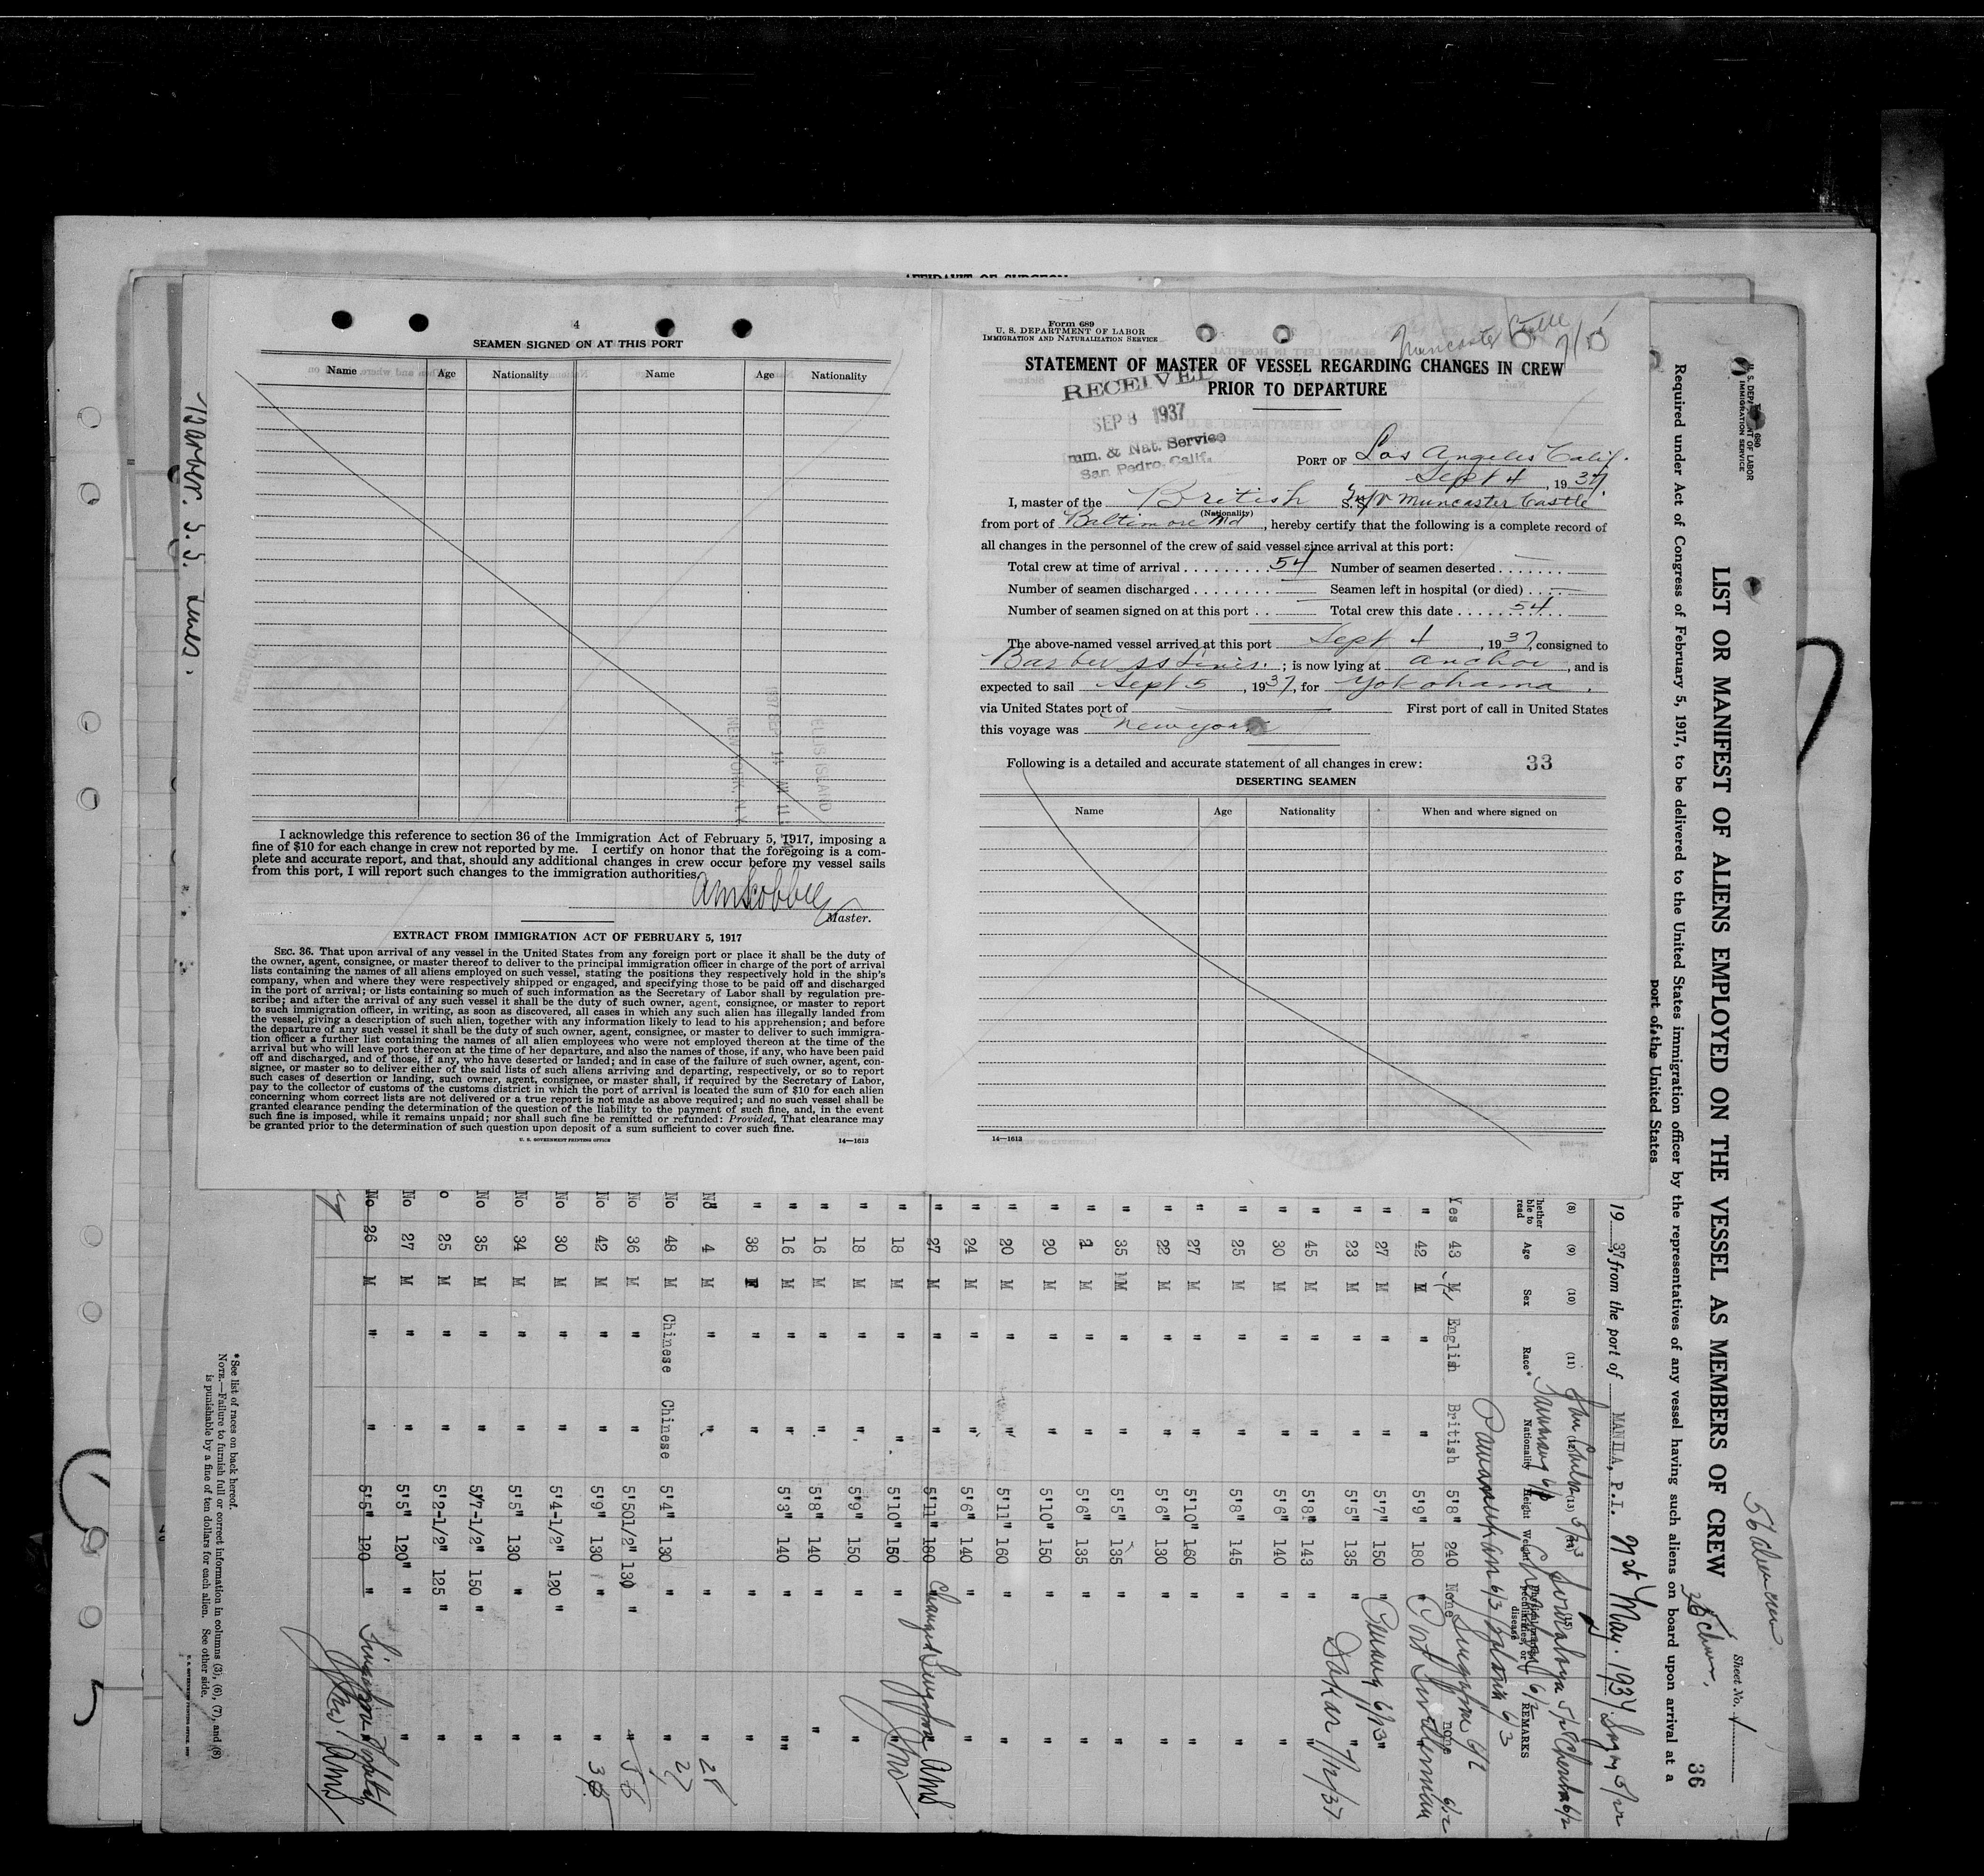 AFFIDAVIT OF SURGEON
4
SEAMEN SIGNED ON AT THIS PORT
Name Age Nationality Name Age Nationality
I acknowledge this reference to section 36 of the Immigration Act of February 5, 1917, imposing a
fine of $10 for each change in crew not reported by me. I certify on honor that the foregoing is a com-
plete and accurate report, and that, should any additional changes in crew occur before my vessel sails
from this port, I will report such changes to the immigration authorities.
Master.
EXTRACT FROM IMMIGRATION ACT OF FEBRUARY 5, 1917
SEC. 36. That upon arrival of any vessel in the United States from any foreign port or place it shall be the duty of
the owner, agent, consignee, or master thereof to deliver to the principal immigration officer in charge of the port of arrival
lists containing the names of all aliens employed on such vessel, stating the positions they respectively hold in the ship's
company, when and where they were respectively shipped or engaged, and specifying those to be paid off and discharged
in the port of arrival; or lists containing so much of such information as the Secretary of Labor shall by regulation pre-
scribe; and after the arrival of any such vessel it shall be the duty of such owner, agent, consignee, or master to report
to such immigration officer, in writing, as soon as discovered, all cases in which any such alien has illegally landed from
the vessel, giving a description of such alien, together with any information likely to lead to his apprehension; and before
the departure of any such vessel it shall be the duty of such owner, agent, consignee, or master to deliver to such immigra-
tion officer a further list containing the names of all alien employees who were not employed thereon at the time of the
arrival but who will leave port thereon at the time of her departure, and also the names of those, if any, who have been paid
off and discharged, and of those, if any, who have deserted or landed; and in case of the failure of such owner, agent, con-
signee, or master so to deliver either of the said lists of such aliens arriving and departing, respectively, or so to report
such cases of desertion or landing, such owner, agent, consignee, or master shall, if required by the Secretary of Labor,
pay to the collector of customs of the customs district in which the port of arrival is located the sum of $10 for each alien
concerning whom correct lists are not delivered or a true report is not made as above required; and no such vessel shall be
granted clearance pending the determination of the question of the liability to the payment of such fine, and, in the event
such fine is imposed, while it remains unpaid; nor shall such fine be remitted or refunded: Provided, That clearance may
be granted prior to the determination of such question upon deposit of a sum sufficient to cover such fine.
U. S. GOVERNMENT PRINTING OFFICE 14—1613
Barber. S. S. Lines.
Form 689
U. S. DEPARTMENT OF LABOR
IMMIGRATION AND NATURALIZATION SERVICE
Muncaster Castle
STATEMENT OF MASTER OF VESSEL REGARDING CHANGES IN CREW
PRIOR TO DEPARTURE
RECEIVED
SEP 8 1937
Imm. & Nat. Service
San Pedro, Calif.
PORT OF Los Angeles Calif.
Sept 4, 1937.
I, master of the British S.S. M/V Muncaster Castle
(Nationality)
from port of Baltimore Md, hereby certify that the following is a complete record of
all changes in the personnel of the crew of said vessel since arrival at this port:
Total crew at time of arrival 54 Number of seamen deserted
Number of seamen discharged Seamen left in hospital (or died)
Number of seamen signed on at this port Total crew this date 54
The above-named vessel arrived at this port Sept 4, 1937, consigned to
Barber SS Lines. ; is now lying at anchor, and is
expected to sail Sept 5, 1937, for Yokohama.
via United States port of First port of call in United States
this voyage was New York
Following is a detailed and accurate statement of all changes in crew: 33
DESERTING SEAMEN
Name Age Nationality When and where signed on
14—1613
U. S. DEPARTMENT OF LABOR
IMMIGRATION SERVICE
Sheet No. 1
36
LIST OR MANIFEST OF ALIENS EMPLOYED ON THE VESSEL AS MEMBERS OF CREW
Required under Act of Congress of February 5, 1917, to be delivered to the United States immigration officer by the representatives of any vessel having such aliens on board upon arrival at a
port of the United States
1937, from the port of MANILA, P.I. 21st May. 1937
(8) (9) (10) (11) (12) (13)
Age Sex Race* Nationality Height Weight REMARKS
Yes 43 M English British 5'8" 240 None none
" 42 M " " 5'9" 180 "
" 27 M " " 5'7" 150 "
" 23 M " " 5'5" 135 "
" 45 M " " 5'8" 143 " "
" 30 M " " 5'6" 140 " "
" 25 M " " 5'8" 145 " "
" 27 M " " 5'10" 180 " "
" 22 M " " 5'6" 130 " "
" 35 M " " 5'5" 135 " "
" 21 M " " 5'6" 135 " "
" 20 M " " 5'10" 150 " "
" 20 M " " 5'11" 160 " "
" 24 M " " 5'6" 140 " "
" 27 M " " 5'11" 180 "
" 18 M " " 5'10" 150 " "
" 18 M " " 5'9" 150 " "
" 16 M " " 5'8" 140 " "
" 16 M " " 5'3" 140 " "
" 38 M " "
No 4 M " " " " 28
No 48 M Chinese Chinese 5'4" 130 " " 27
No 36 M " " 130 " "
No 42 M " " 5'9" 130 " "
No 30 M " " 5'4-1/2" 120 " "
No 34 M " " 5'5" 130 " "
No 35 M " " 5'7-1/2" 150 " "
25 M " " 5'2-1/2" 125 " "
No 27 M " " 5'5" 120 " "
No 26 M " " 5'5" 120 "
*See list of races on back hereof.
NOTE.—Failure to furnish full or correct information in columns (3), (6), (7), and (8)
is punishable by a fine of ten dollars for each alien. See other side.